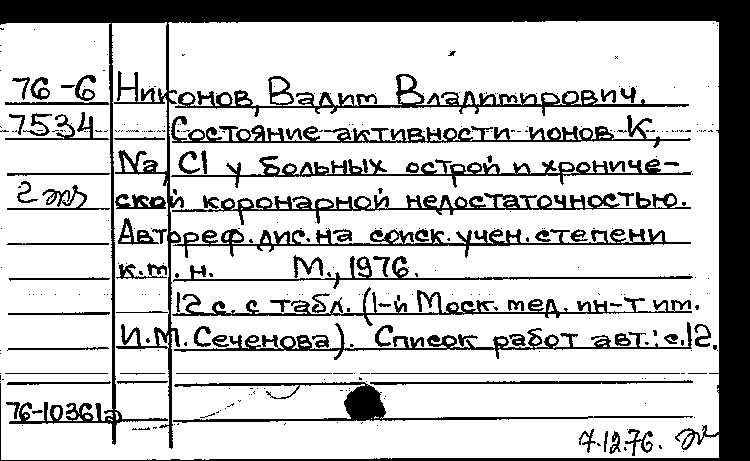 76-6 Никонов, Вадим Владимирович.
7534 Состояние активности ионов K,
Na, Cl у больных острой и хрониче-
2 экз ской коронарной недостаточностью.
Автореф. дис. на соиск. учен. степени
к.м.н. М., 1976.
12 с. с табл. (1-й Моск. мед. ин-т им.
И.М. Сеченова). Список работ авт.: с.12.
76-10361а
7.12.76.